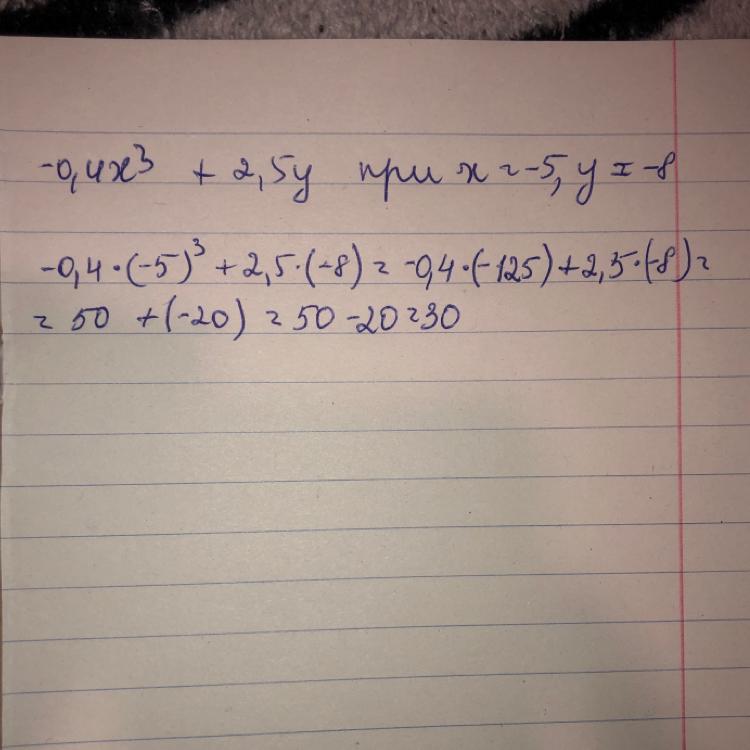 -0,4x³ + 2,5y при x = -5, y = -8
-0,4·(-5)³ + 2,5·(-8) = -0,4·(-125) + 2,5·(-8) =
= 50 + (-20) = 50 - 20 = 30